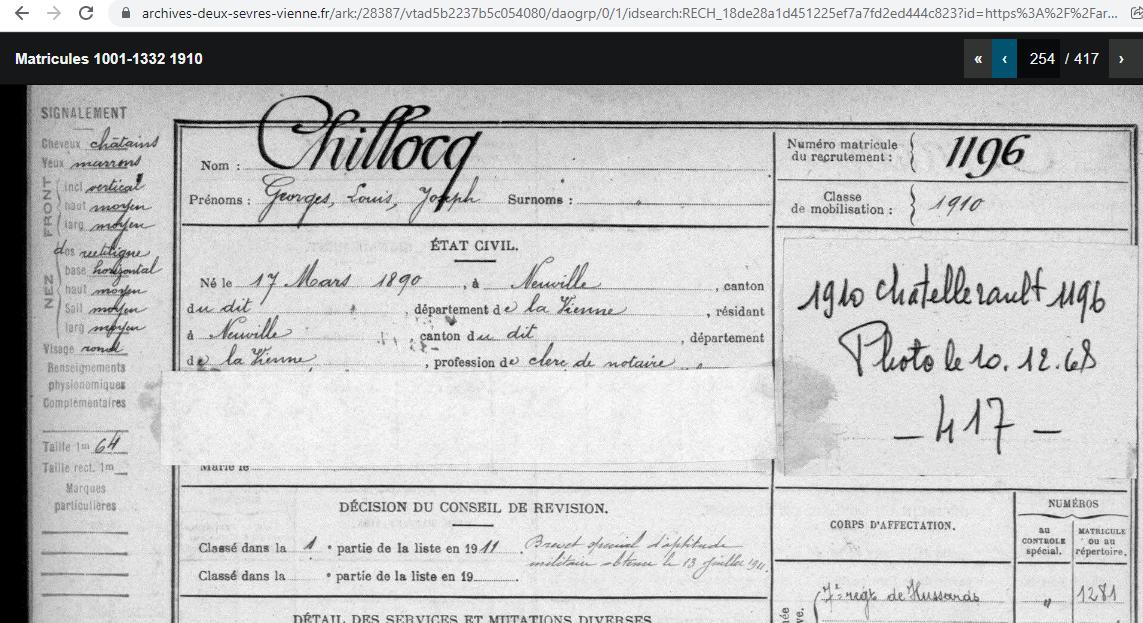 archives-deux-sevres-vienne.fr/ark:/28387/vtad5b2237b5c054080/daogrp/0/1/idsearch:RECH_18de28a1d451225ef7a7fd2ed444c823?id=https%3A%2F%2Far...
Matricules 1001-1332 1910
« ‹ 254 / 417 ›
SIGNALEMENT
Cheveux châtains
Yeux marrons
FRONT
incl vertical
haut moyen
larg moyen
NEZ
dos rectiligne
base horizontal
haut moyen
Sail moyen
larg moyen
Visage rond
Renseignements
physionomiques
Complémentaires
Taille 1m 64
Taille rect. 1m
Marques
particulières
Nom : Chillocq
Prénoms : Georges, Louis, Joseph Surnoms :
Numéro matricule
du recrutement : 1196
Classe
de mobilisation : 1910
ÉTAT CIVIL.
Né le 17 Mars 1890, à Neuville, canton
du dit, département de la Vienne, résidant
à Neuville canton du dit, département
de la Vienne, profession de clerc de notaire
Marié le
1910 Chatellerault 1196
Photo le 10.12.68
- 417 -
DÉCISION DU CONSEIL DE REVISION.
Classé dans la 1 e partie de la liste en 1911. Brevet spécial d'aptitude
militaire obtenu le 13 juillet 1911.
Classé dans la e partie de la liste en 19
DÉTAIL DES SERVICES ET MUTATIONS DIVERSES
CORPS D'AFFECTATION.
NUMÉROS
au
CONTROLE
spécial.
MATRICULE
ou au
répertoire.
7e régt de Hussards " 1281